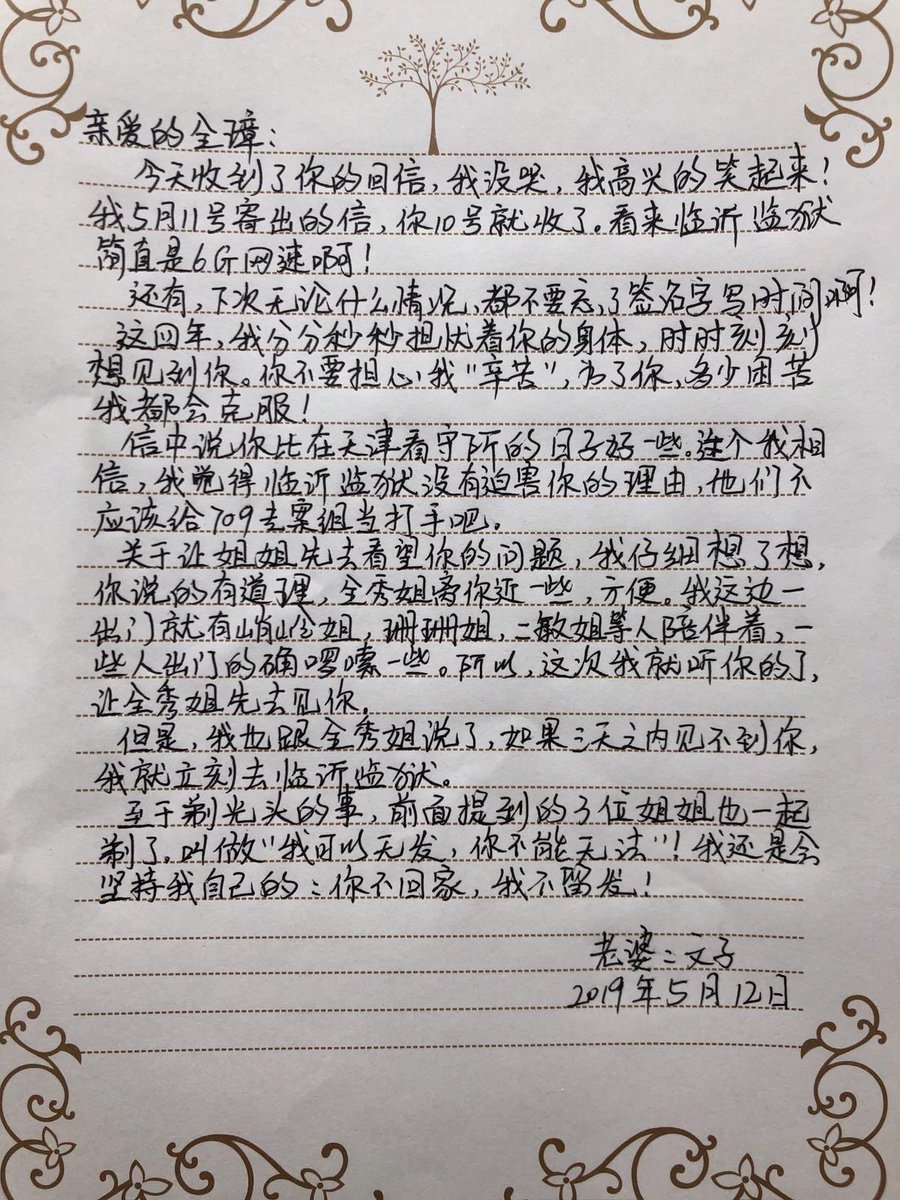 亲爱的全璋：
今天收到了你的回信，我没哭，我高兴的笑起来！
我5月11号寄出的信，你10号就收了。看来临沂监狱
简直是6G网速啊！
还有，下次无论什么情况，都不要忘了签名字写时间啊！
这四年，我分分秒秒担忧着你的身体，时时刻刻
想见到你。你不要担心我"辛苦"，为了你，多少困苦
我都会克服！
信中说你比在天津看守所的日子好一些。这个我相
信，我觉得临沂监狱没有迫害你的理由，他们不
应该给709专案组当打手吧。
关于让姐姐先去看望你的问题，我仔细想了想，
你说的有道理，全秀姐离你近一些，方便。我这边一
出门就有峭岭姐，珊珊姐，二敏姐等人陪伴着，一
些人出门的确啰嗦一些。所以，这次我就听你的了，
让全秀姐先去见你。
但是，我也跟全秀姐说了，如果三天之内见不到你，
我就立刻去临沂监狱。
至于剃光头的事，前面提到的3位姐姐也一起
剃了。叫做"我可以无发，你不能无法"！我还是会
坚持我自己的：你不回家，我不留发！
老婆：文子
2019年5月12日